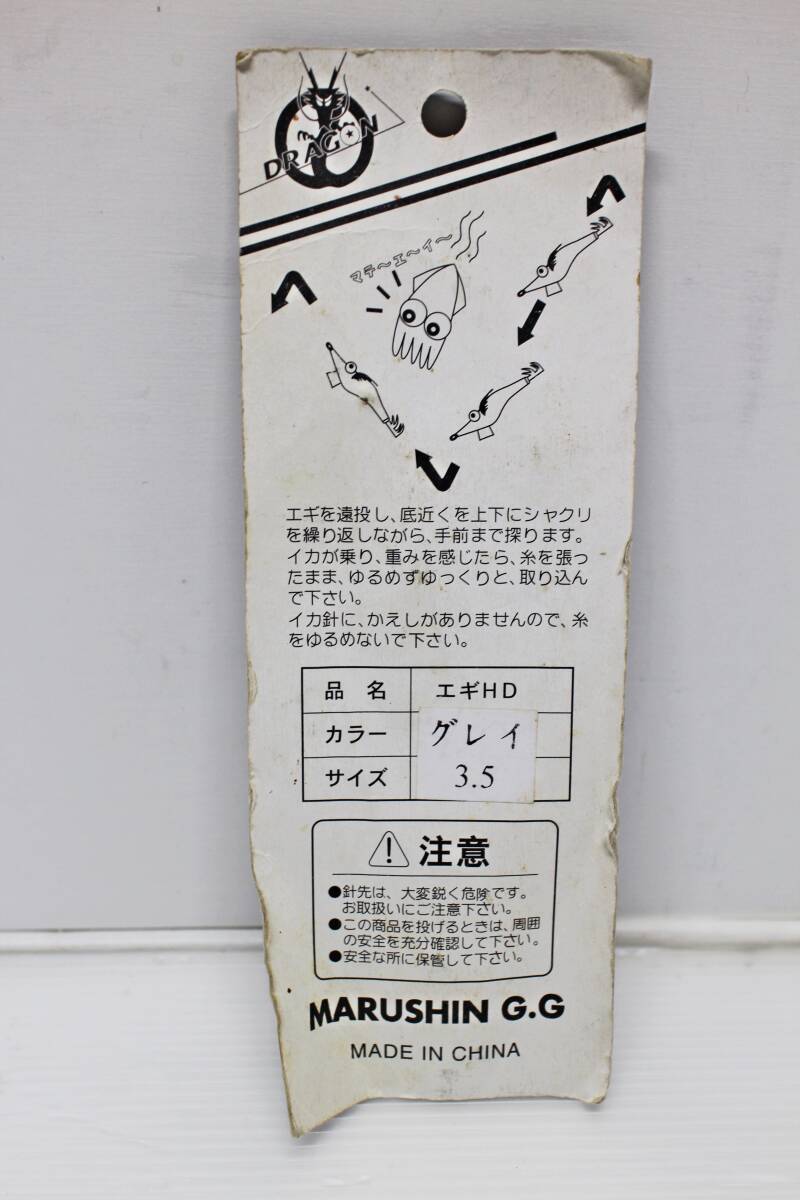 DRAGON
マテ〜エ〜イ〜
エギを遠投し、底近くを上下にシャクリ
を繰り返しながら、手前まで探ります。
イカが乗り、重みを感じたら、糸を張っ
たまま、ゆるめずゆっくりと、取り込ん
で下さい。
イカ針に、かえしがありませんので、糸
をゆるめないで下さい。
品 名 エギHD
カラー グレイ
サイズ 3.5
注意
●針先は、大変鋭く危険です。
お取扱いにご注意下さい。
●この商品を投げるときは、周囲
の安全を充分確認して下さい。
●安全な所に保管して下さい。
MARUSHIN G.G
MADE IN CHINA